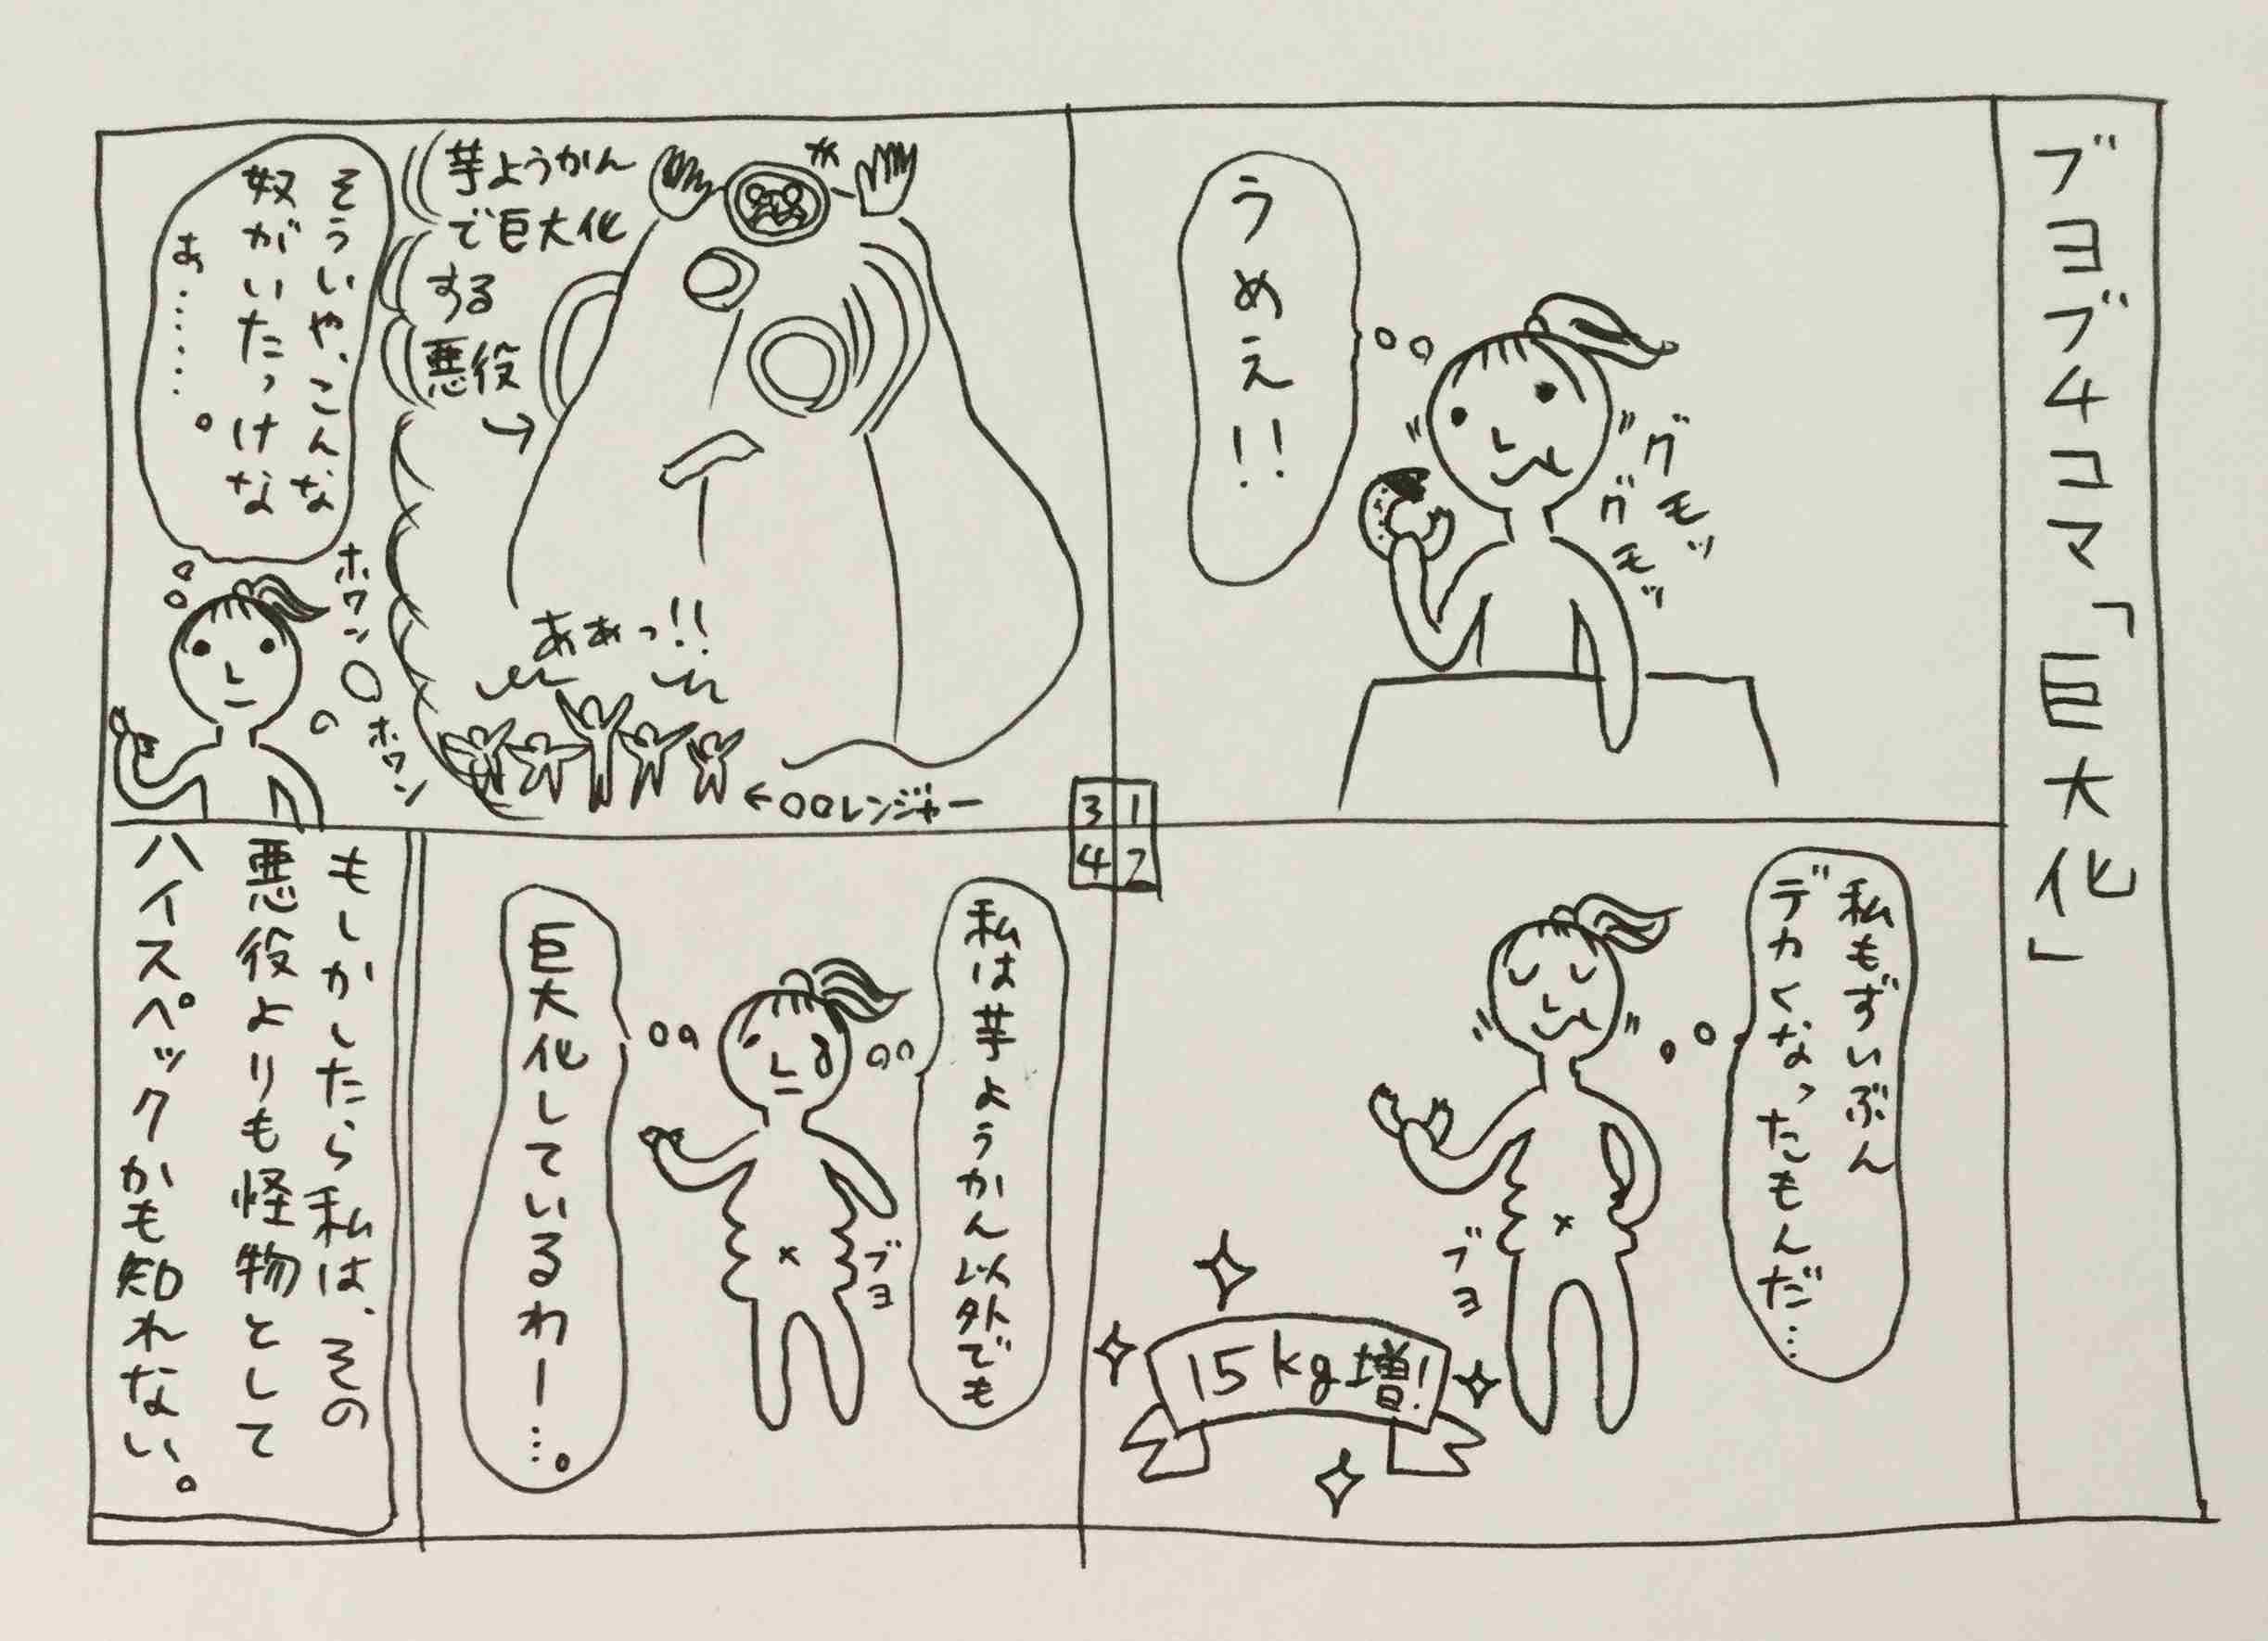 ブヨブヨコマ「巨大化」
うめえ!!
グモッ
グモッ
私もずいぶん
デカくなったもんだ…
ブヨ
15kg増!
芋ようかん
で巨大化
する
悪役
→
そういや、こんな
奴がいたっけな
ぁ……。
ホワン
ホワン
ああっ!!
←○○レンジャー
3 1
4 2
私は芋ようかん以外でも
巨大化しているわー…。
ブヨ
もしかしたら私は、その
悪役よりも怪物として
ハイスペックかも知れない。